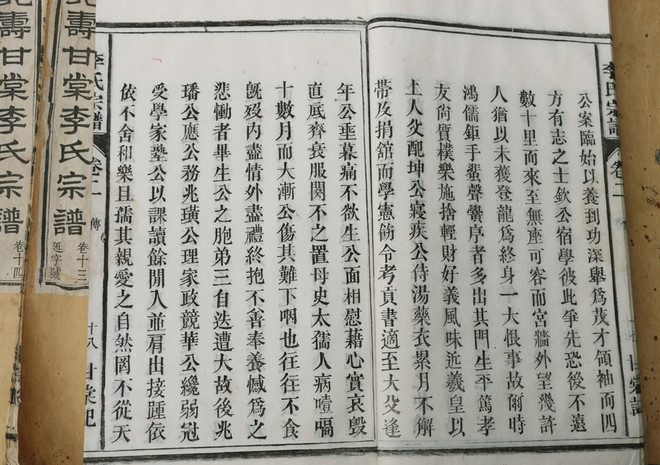 李氏宗譜 卷二
公案臨始以養到功深舉爲茂才領袖而四
方有志之士欽公宿學彼此爭先恐後不遠
數十里而來至無座可容而宮牆外望幾許
人猶以未獲登龍爲終身一大恨事故爾時
鴻儒鉅手蜚聲黌序者多出其門生平篤孝
友尚質樸樂施捨輕財好義風味近羲皇以
上人父配坤公寢疾公侍湯藥衣累月不解
帶及捐舘而學憲飭令考貢書適至大父逢
年公垂暮痛不欲生公面相慰藉心實哀毀
直底齊衰服闋不之置母史太孺人病噎嗝
十數月而大漸公傷其難下咽也往往不食
旣歿內盡情外盡禮終抱不善奉養憾爲之
悲慟者畢生公之胞弟三自迭遭大故後兆
璠公應公務兆璜公理家政競華公纔弱冠
受學家塾公以課讀餘閒人並肩出接踵依
依不舍和樂且孺其親愛之自然罔不從天
李氏宗譜 卷二 傳 十八 甘棠記
壽甘棠李氏宗譜 卷十三 延字號
壽甘棠李氏宗譜 卷十四